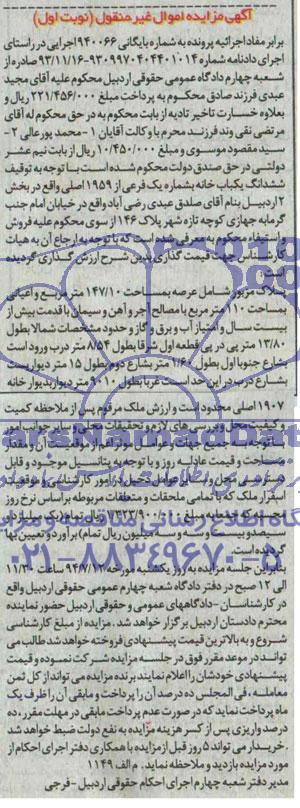 آگهی مزایده اموال غیر منقول (نوبت اول)
برابر مفاد اجرائیه پرونده به شماره بایگانی ۹۴۰۰۶۶ اجرایی در راستای
اجرای دادنامه شماره ۹۳۰۹۹۷۰۴۰۴۴۰۱۰۱۴-۹۳/۱۱/۱۶ صادره از
شعبه چهارم دادگاه عمومی حقوقی اردبیل محکوم علیه آقای مجید
عبدی فرزند صادق محکوم به پرداخت مبلغ ۲۲۱/۴۵۶/۰۰۰ ریال و
بعلاوه خسارت تاخیر تادیه از بابت محکوم به در حق محکوم له آقای
مرتضی نقی وند فرزند محرم با وکالت آقایان ۱- محمد پورعالی ۲-
سید مقصود موسوی و مبلغ ۱۰/۴۵۰/۰۰۰ ریال از بابت نیم عشر
دولتی در حق صندوق دولت محکوم شده است با توجه به توقیف
ششدانگ یکباب خانه بشماره یک فرعی از ۱۹۵۹ اصلی واقع در بخش
۲ اردبیل بنام آقای صادق عبدی رضی آباد واقع در خیابان امام جنب
گرمابه جهازی کوچه تازه شهر پلاک ۱۴۶ از سوی محکوم علیه فروش
و استیفاء محکوم به معرفی شده است که با توجه به ارجاع آن به هیات
کارشناس جهت قیمت گذاری بدین شرح ارزش گذاری گردیده
است
پلاک مزبور شامل عرصه بمساحت ۱۴۷/۱۰ متر مربع و اعیانی
بمساحت ۱۱۰ متر مربع با مصالح آجر و آهن و سیمان با قدمت بیش از
بیست سال و امتیاز آب و برق و گاز و حدود مشخصات شمالا بطول
۱۳/۸۰ متر پی در پی قطعه اول شرقا بطول ۸/۵۴ متر درب ورود است
بشارع جنوبا اول بطول ۱/۶۰ متر بشارع دوم بطول ۱۵ متر دیواریست
بشارع درب در این حد است غربا بطول ۹۰۱۰ متر دیوار بدیوار خانه
۱۹۰۷ اصلی محدود است و ارزش ملک مرقوم پس از ملاحظه کمیت
و کیفیت محل و بررسی های لازم و تحقیقات محلی و سایر جوانب امور
با توجه به جمیع جهات و عوامل موثر اعم از موقعیت آن و مقدار
مساحت و قیمت عادله روز و با توجه به پتانسیل موجود و قابل
دسترسی محل و سایر عوامل دخیل در امور کارشناسی و موقعیت
استقرار ملک که با تمامی ملحقات و متعلقات مربوطه براساس نرخ روز
محل که جمعا به مبلغ ریال تمام (یک میلیارد و
سیصد و بیست و سه و سه میلیون ریال تمام) برآورد و تعیین بها
گردیده است.
بنابراین جلسه مزایده به روز یکشنبه مورخه ۹۴/۷/۱۲ ساعت ۱۱/۳۰
الی ۱۲ صبح در دفتر دادگاه شعبه چهارم عمومی حقوقی اردبیل واقع
در کارشناسان - دادگاههای عمومی و حقوقی اردبیل حضور نماینده
محترم دادستان اردبیل برگزار خواهد شد. مزایده از مبلغ کارشناسی
شروع و به بالاترین قیمت پیشنهادی فروخته خواهد شد طالب می
تواند در موعد مقرر فوق در جلسه مزایده شرکت نموده و قیمت
پیشنهادی خودشان را اعلام نمایند برنده مزایده می تواند از کل ثمن
معامله، فی المجلس ده درصد آن را پرداخت و مابقی آن را ظرف یک
ماه پرداخت نماید که در صورت عدم پرداخت مابقی در مهلت مقرر، ده
درصد واریزی پس از کسر هزینه مزایده به نفع دولت ضبط خواهد شد
. خریدار می تواند ۵ روز قبل از مزایده با همکاری دفتر اجرای احکام از
مورد مزایده بازدید و ملاحظه نماید. م الف ۱۱۴۹
مدیر دفتر شعبه چهارم اجرای احکام حقوقی اردبیل - فرجی
ParsNamadData
پایگاه اطلاع رسانی مناقصه و مزایده
۰۲۱-۸۸۳۴۹۶۷۰-۵